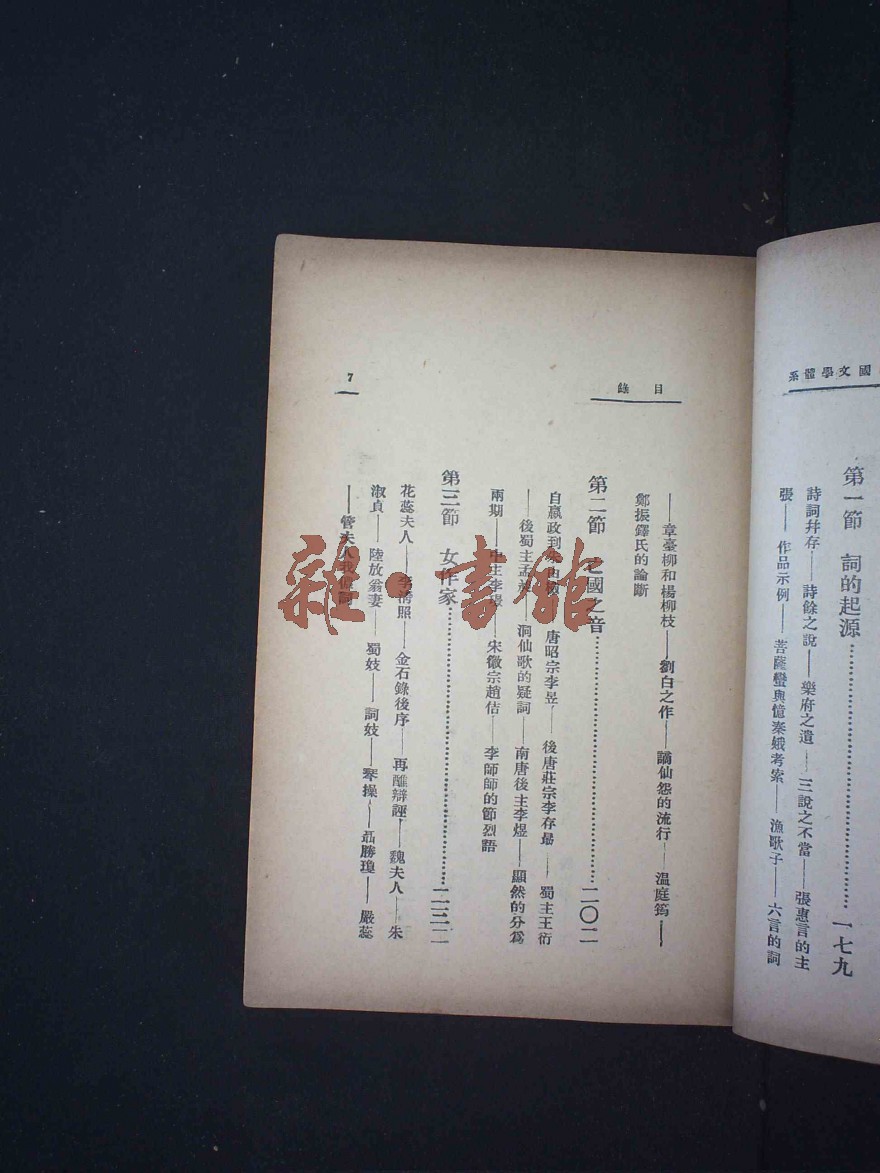 國文學體系
第一節 詞的起源 一七九
詩詞幷存——詩餘之說——樂府之遺——三說之不當——張惠言的主
張——作品示例——菩薩蠻與憶秦娥考案——漁歌子——六言的詞
目錄
——章臺柳和楊柳枝——劉白之作——謫仙怨的流行——温庭筠——
鄭振鐸氏的論斷
第二節 亡國之音 二〇二
自嬴政到朱由檢——唐昭宗李昱——後唐莊宗李存勗——蜀主王衍
——後蜀主孟昶——洞仙歌的疑詞——南唐後主李煜——顯然的分爲
兩期——中主李璟——宋徽宗趙佶——李師師的節烈語
第三節 女作家 二三二
花蕊夫人——李淸照——金石錄後序——再醮辯誣——魏夫人——朱
淑貞——陸放翁妻——蜀妓——詞妓——琴操——聶勝瓊——嚴蕊
——管夫人我儂詞
7
雜·書館